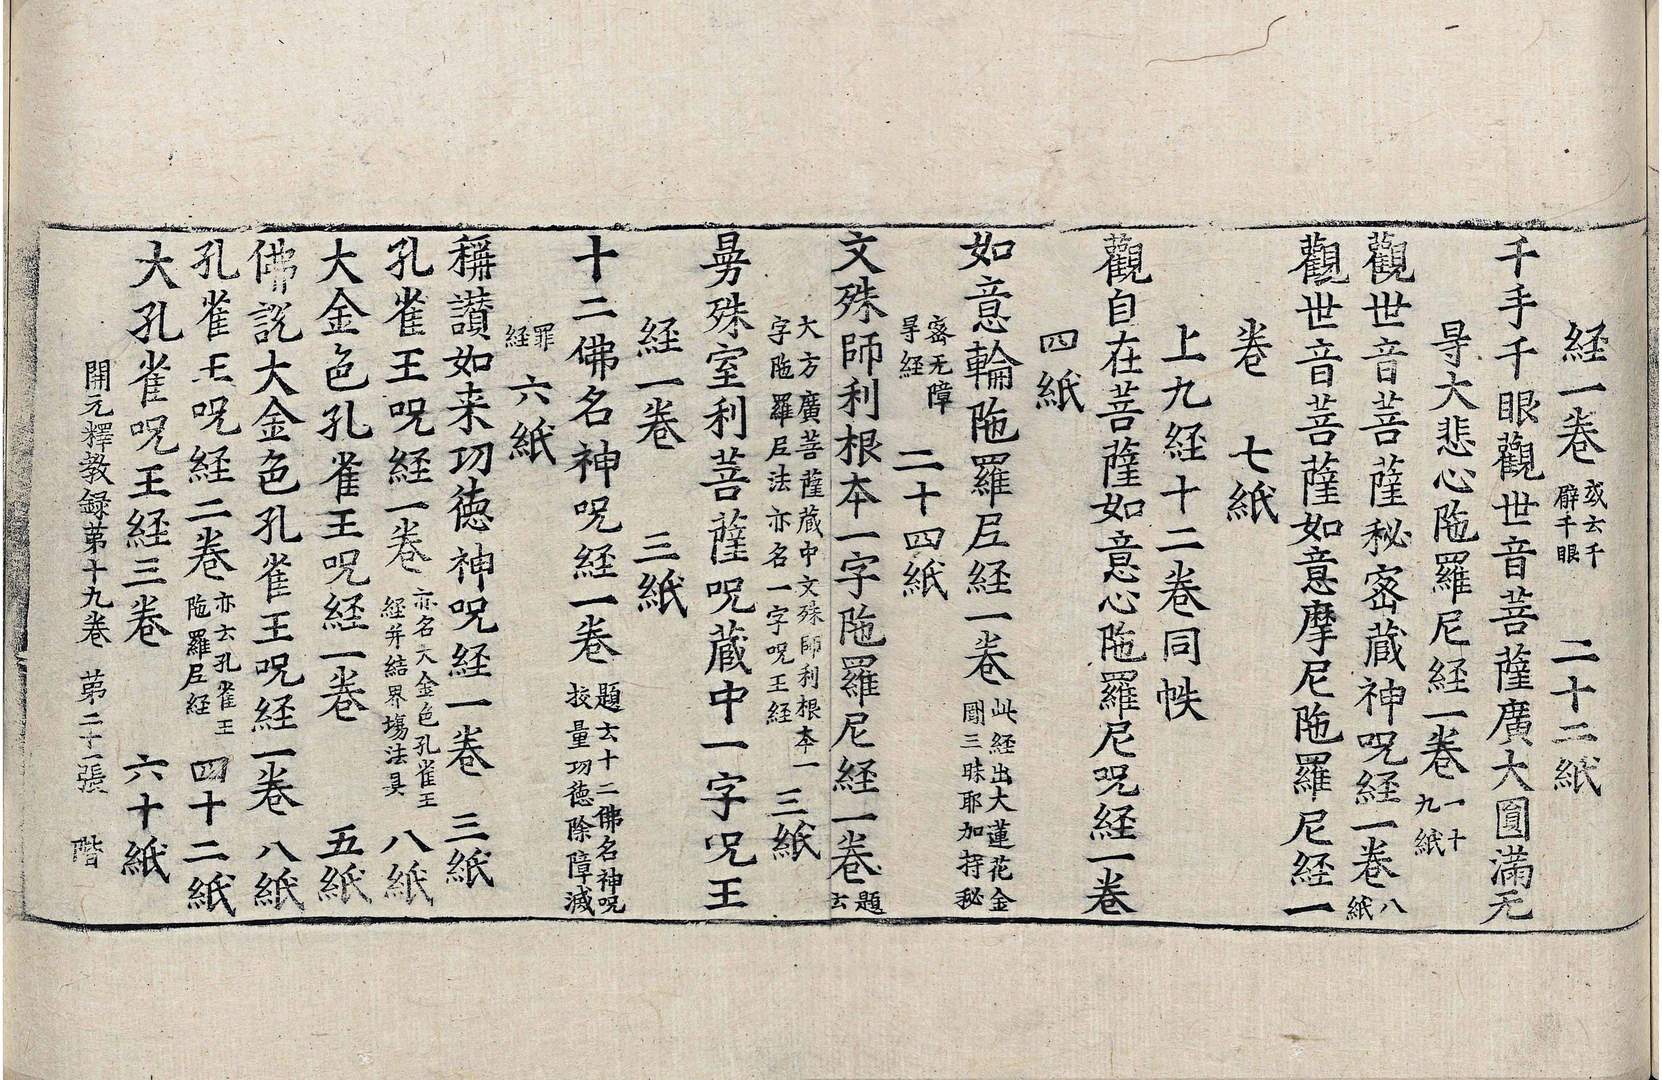 経一卷 或云千臂千眼 二十二紙
千手千眼觀世音菩薩廣大圓滿无
㝵大悲心陁羅尼経一卷 一十九紙
觀世音菩薩秘宻蔵神呪経一卷 八紙
觀世音菩薩如意摩尼陁羅尼経一
卷 七紙
上九経十二卷同帙
觀自在菩薩如意心陁羅尼呪経一卷
四紙
如意輪陁羅尼経一卷 此経出大蓮花金剛三昧耶加持秘
宻无障㝵経 二十四紙
文殊師利根本一字陁羅尼経一卷 題云
大方廣菩薩蔵中文殊師利根本一字陁羅尼法亦名一字呪王経 三紙
曼殊室利菩薩呪蔵中一字呪王
経一卷 三紙
十二佛名神呪経一卷 題云十二佛名神呪挍量功徳除障滅
罪経 六紙
稱讃如来功徳神呪経一卷 三紙
孔雀王呪経一卷 亦名大金色孔雀王経并結界塲法具 八紙
大金色孔雀王呪経一卷 五紙
佛説大金色孔雀王呪経一卷 八紙
孔雀王呪経二卷 亦云孔雀王陁羅尼経 四十二紙
大孔雀呪王経三卷 六十紙
開元釋教録苐十九卷 苐二十一張 階